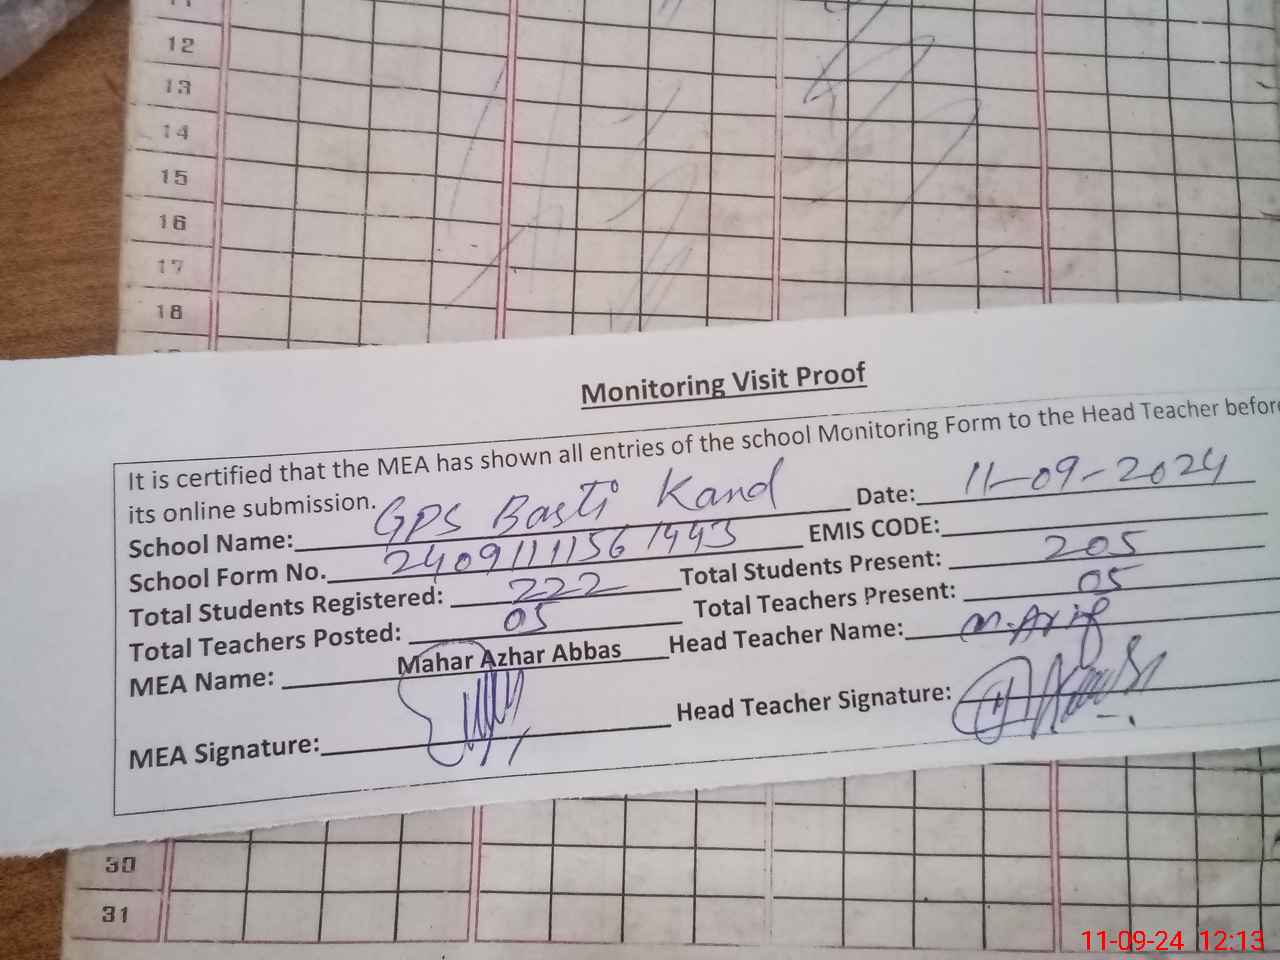 12
13
14
15
16
17
18
Monitoring Visit Proof
It is certified that the MEA has shown all entries of the school Monitoring Form to the Head Teacher before
its online submission.
School Name: GPS Basti Kand Date: 11-09-2024
School Form No. 24091111561443 EMIS CODE:
Total Students Registered: 222 Total Students Present: 205
Total Teachers Posted: 05 Total Teachers Present: 05
MEA Name: Mahar Azhar Abbas Head Teacher Name: M. Arif
MEA Signature: Head Teacher Signature:
30
31
11-09-24 12:13